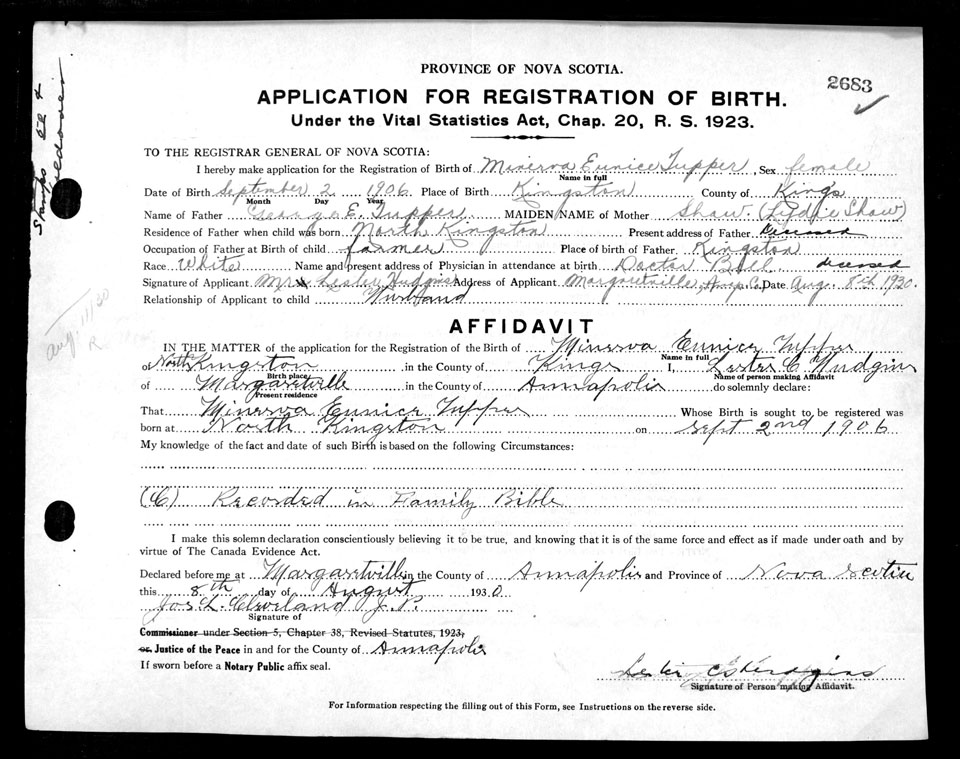 PROVINCE OF NOVA SCOTIA.
2683
APPLICATION FOR REGISTRATION OF BIRTH.
Under the Vital Statistics Act, Chap. 20, R. S. 1923.
Stamps
TO THE REGISTRAR GENERAL OF NOVA SCOTIA:
I hereby make application for the Registration of Birth of Minerva Eunice Tupper, Sex female
Name in full
Date of Birth September 2 1906 Place of Birth Kingston County of Kings
Month Day Year
Name of Father George E. Tupper MAIDEN NAME of Mother Shaw. (Lydie Shaw)
Residence of Father when child was born North Kingston Present address of Father Deceased
Occupation of Father at Birth of child farmer Place of birth of Father Kingston
Race White Name and present address of Physician in attendance at birth Doctor Ball deceased
Signature of Applicant Mr Lesley Hudgins Address of Applicant Margretville, Annap Co. Date Aug. 8th 1930.
Relationship of Applicant to child Husband
Aug. 11/30
AFFIDAVIT
IN THE MATTER of the application for the Registration of the Birth of Minerva Eunice Tupper
Name in full
of North Kingston in the County of Kings I, Lester C. Hudgins
Birth place Name of person making Affidavit
of Margaretville in the County of Annapolis do solemnly declare:
Present residence
That Minerva Eunice Tupper Whose Birth is sought to be registered was
born at North Kingston on Sept 2nd 1906
My knowledge of the fact and date of such Birth is based on the following Circumstances:
(C) Recorded in Family Bible
I make this solemn declaration conscientiously believing it to be true, and knowing that it is of the same force and effect as if made under oath and by
virtue of The Canada Evidence Act.
Declared before me at Margaretville in the County of Annapolis and Province of Nova Scotia
this 8th day of August 1930
Jos. L. Cleveland J.P.
Signature of
Commissioner under Section 5, Chapter 38, Revised Statutes, 1923,
or Justice of the Peace in and for the County of Annapolis
If sworn before a Notary Public affix seal.
Lester C Hudgins
Signature of Person making Affidavit.
For Information respecting the filling out of this Form, see Instructions on the reverse side.